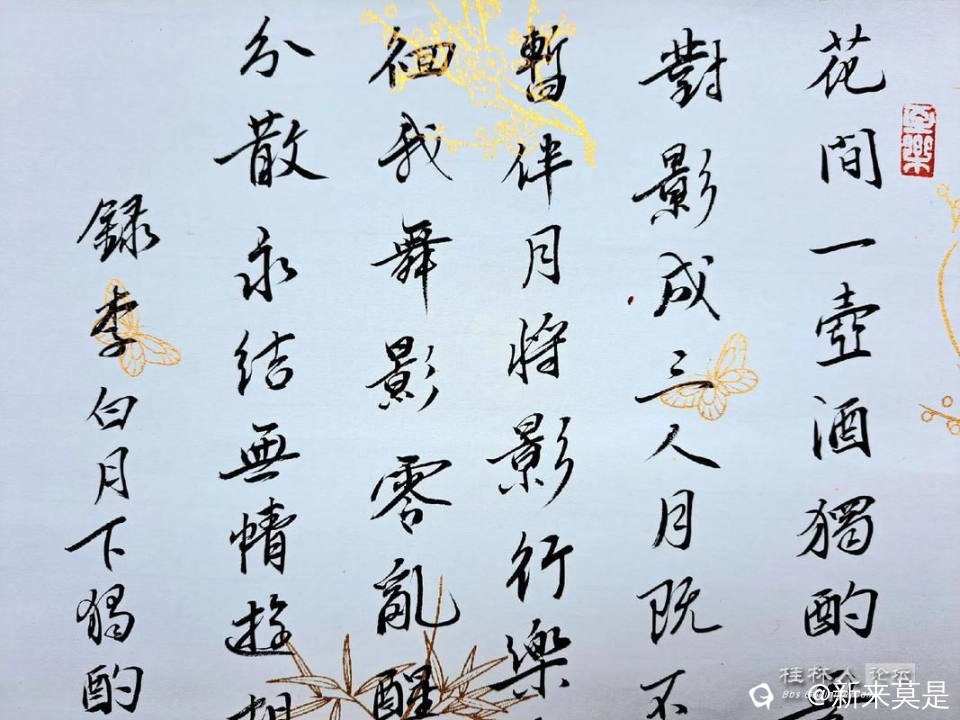 花間一壺酒獨酌
對影成三人月既不
暫伴月將影行樂
徊我舞影零亂醒
分散永結無情遊
錄李白月下獨酌
桂林人论坛
@新来莫是